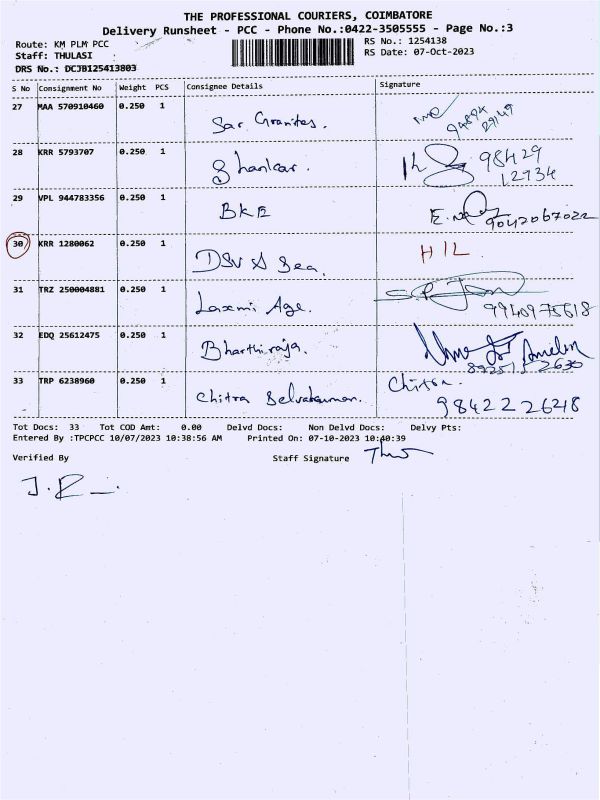 THE PROFESSIONAL COURIERS, COIMBATORE
Delivery Runsheet - PCC - Phone No.:0422-3505555 - Page No.:3
Route: KM PLM PCC
RS No.: 1254138
Staff: THULASI
RS Date: 07-Oct-2023
DRS No.: DCJB125413803
S No Consignment No Weight PCS Consignee Details Signature
27 MAA 570910460 0.250 1 Sar Granites. 94894
29149
28 KRR 5793707 0.250 1 Shankar. 98429
12934
29 VPL 944783356 0.250 1 BKE 9042067022
30 KRR 1280062 0.250 1 DSV A Sea. HIL
31 TRZ 250004881 0.250 1 Laxmi Age. 9940975618
32 EDQ 25612475 0.250 1 Bharthiraja.
33 TRP 6238960 0.250 1 Chitra Selvakumar. Chitra.
9842226248
Tot Docs: 33 Tot COD Amt: 0.00 Delvd Docs: Non Delvd Docs: Delvy Pts:
Entered By :TPCPCC 10/07/2023 10:38:56 AM Printed On: 07-10-2023 10:40:39
Verified By Staff Signature